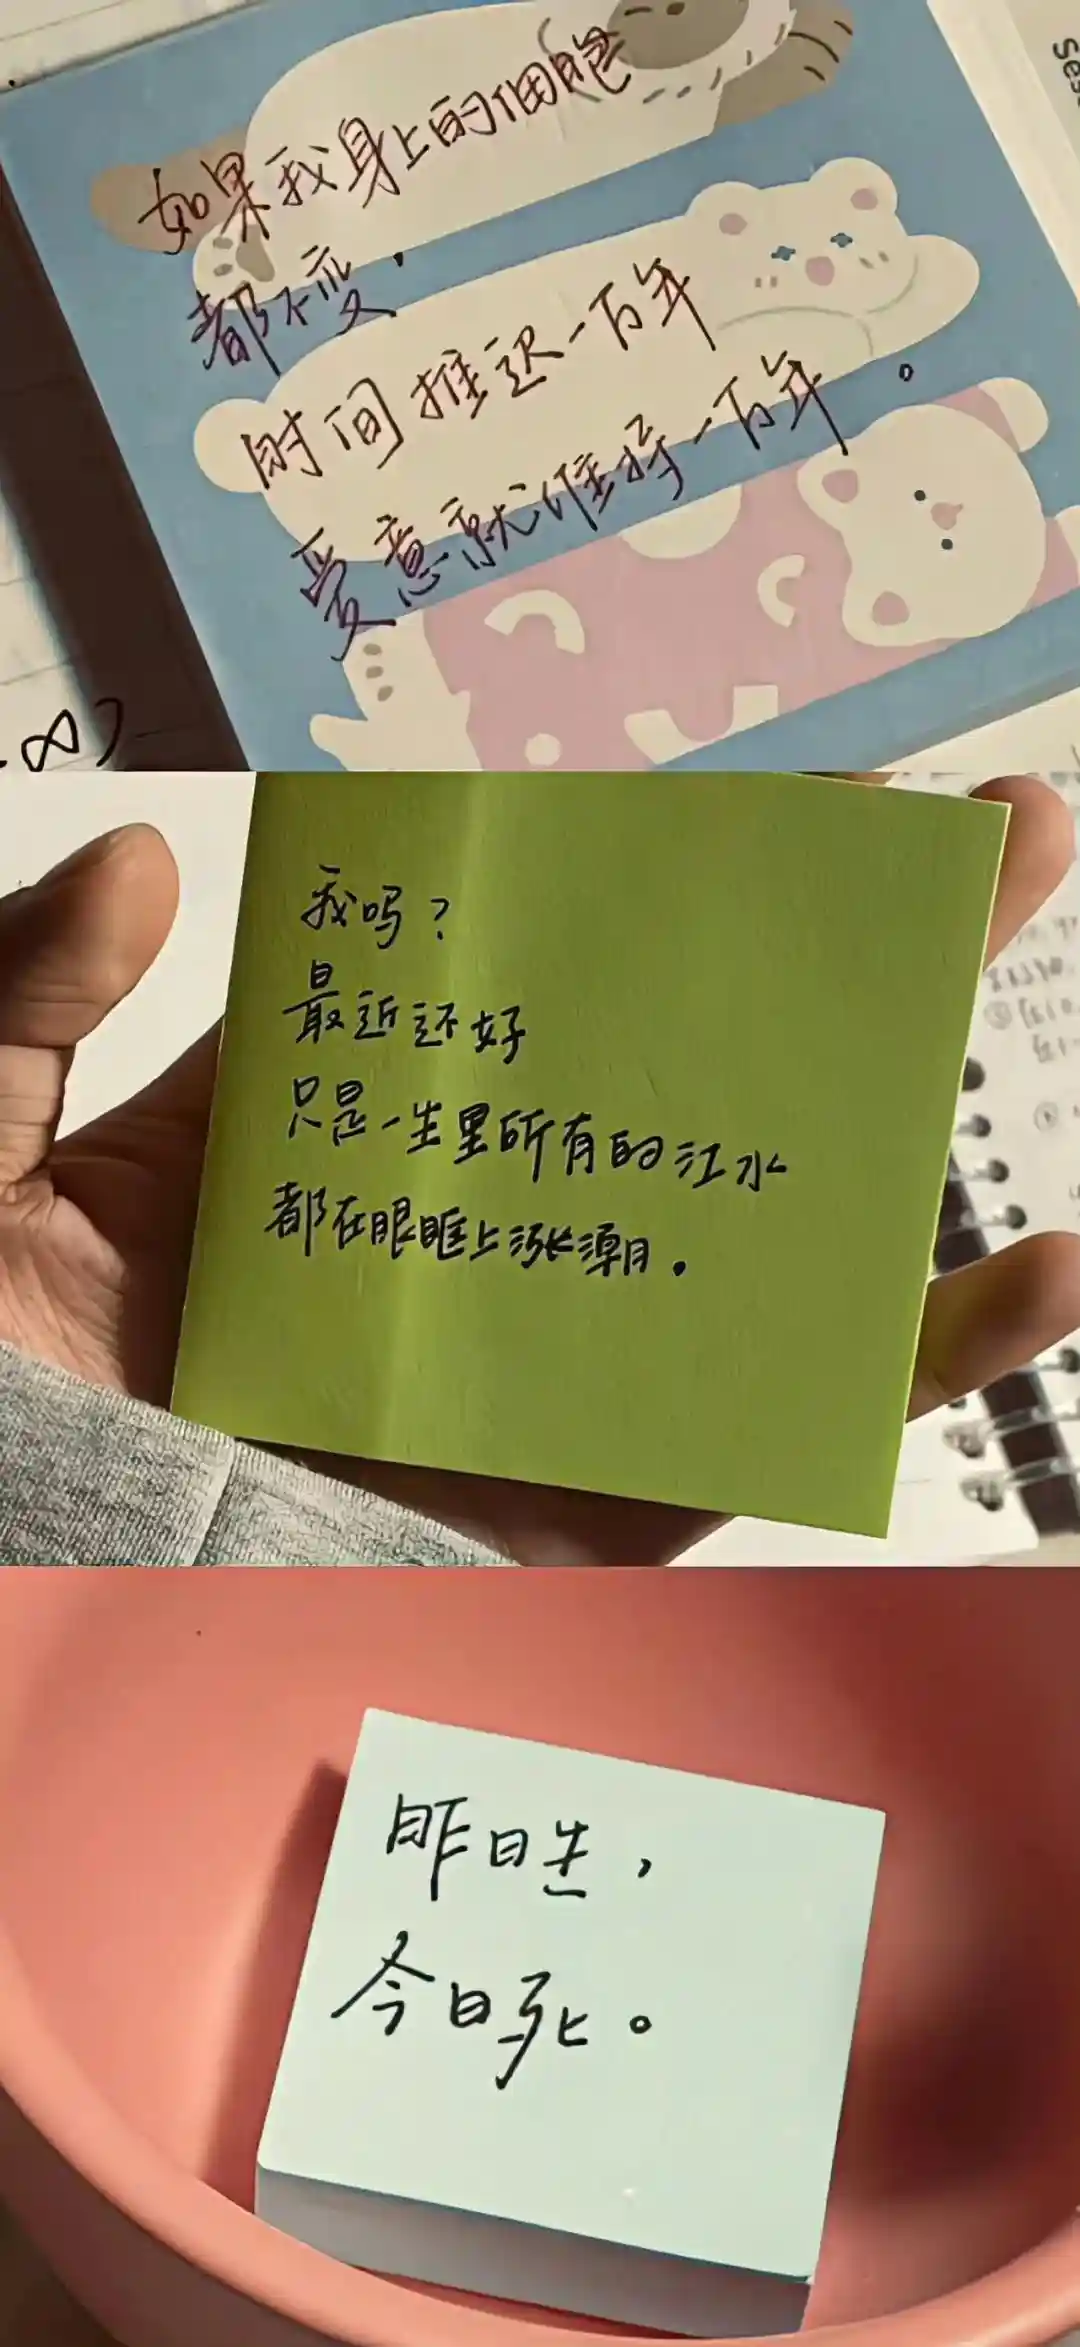 如果我身上的细胞
都不变.
时间推迟一百年
爱意就维持一百年。
我吗?
最近还好
只是一生里所有的江水
都在眼眶上涨潮.
昨日生,
今日死。